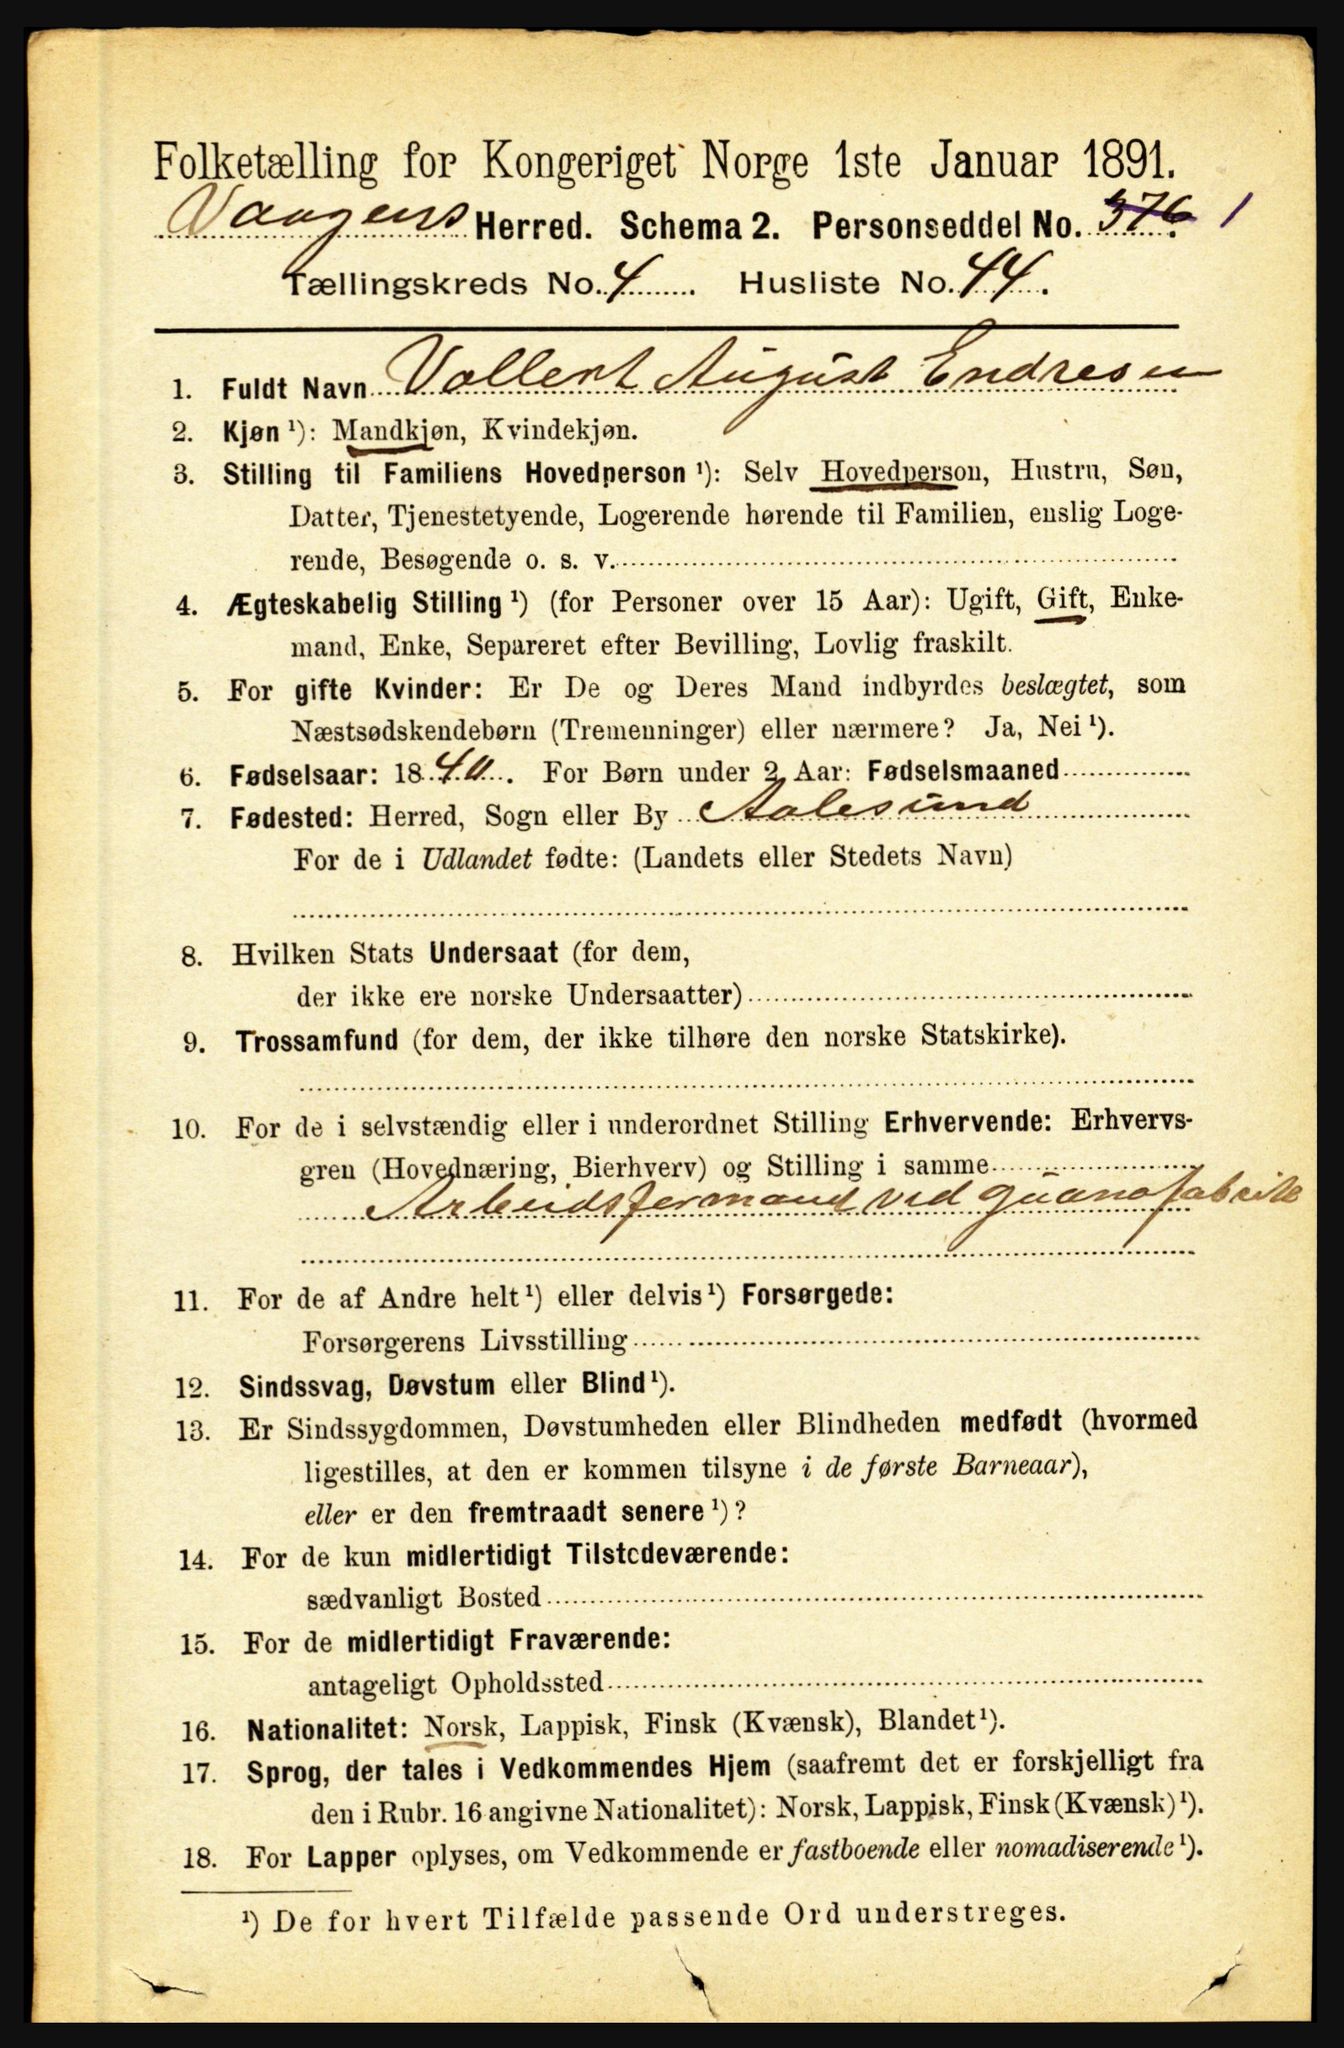 Folketælling for Kongeriget Norge 1ste Januar 1891.
Vaagens Herred. Schema 2. Personseddel No. 376. 1
Tællingskreds No. 4. Husliste No. 44.
1. Fuldt Navn Vollert August Endresen
2. Kjøn ¹): Mandkjøn, Kvindekjøn.
3. Stilling til Familiens Hovedperson ¹): Selv Hovedperson, Hustru, Søn,
Datter, Tjenestetyende, Logerende hørende til Familien, enslig Loge-
rende, Besøgende o. s. v.
4. Ægteskabelig Stilling ¹) (for Personer over 15 Aar): Ugift, Gift, Enke-
mand, Enke, Separeret efter Bevilling, Lovlig fraskilt.
5. For gifte Kvinder: Er De og Deres Mand indbyrdes beslægtet, som
Næstsødskendebørn (Tremenninger) eller nærmere? Ja, Nei ¹).
6. Fødselsaar: 1840. For Børn under 2 Aar: Fødselsmaaned
7. Fødested: Herred, Sogn eller By Aalesund
For de i Udlandet fødte: (Landets eller Stedets Navn)
8. Hvilken Stats Undersaat (for dem,
der ikke ere norske Undersaatter)
9. Trossamfund (for dem, der ikke tilhøre den norske Statskirke).
10. For de i selvstændig eller i underordnet Stilling Erhvervende: Erhvervs-
gren (Hovednæring, Bierhverv) og Stilling i samme
Arbeidsformand ved guanofabrik
11. For de af Andre helt ¹) eller delvis ¹) Forsørgede:
Forsørgerens Livsstilling
12. Sindssvag, Døvstum eller Blind ¹).
13. Er Sindssygdommen, Døvstumheden eller Blindheden medfødt (hvormed
ligestilles, at den er kommen tilsyne i de første Barneaar),
eller er den fremtraadt senere ¹)?
14. For de kun midlertidigt Tilstedeværende:
sædvanligt Bosted
15. For de midlertidigt Fraværende:
antageligt Opholdssted
16. Nationalitet: Norsk, Lappisk, Finsk (Kvænsk), Blandet ¹).
17. Sprog, der tales i Vedkommendes Hjem (saafremt det er forskjelligt fra
den i Rubr. 16 angivne Nationalitet): Norsk, Lappisk, Finsk (Kvænsk) ¹).
18. For Lapper oplyses, om Vedkommende er fastboende eller nomadiserende ¹).
¹) De for hvert Tilfælde passende Ord understreges.